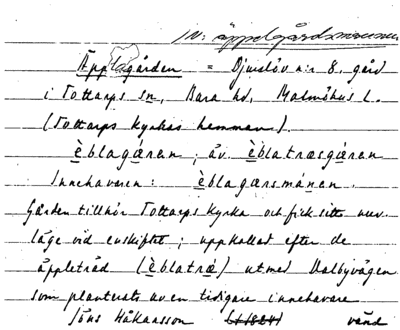 IV: äppelgårdsmannen
Äpplagården = Djurslöv n:r 8, gård
i Tottarps sn, Bara hd, Malmöhus l.
(Tottarps kyrkas hemman).
èblagáren; äv. èblatræsgáren
Innehavaren: èblagærsmánen.
Gården tillhör Tottarps kyrka och fick sitt nuv.
läge vid enskiftet; uppkallad efter de
äppleträd (èblatræ) utmed Dalbyvägen
som planterats av en tidigare innehavare
Jöns Håkansson (f. 1824) vänd